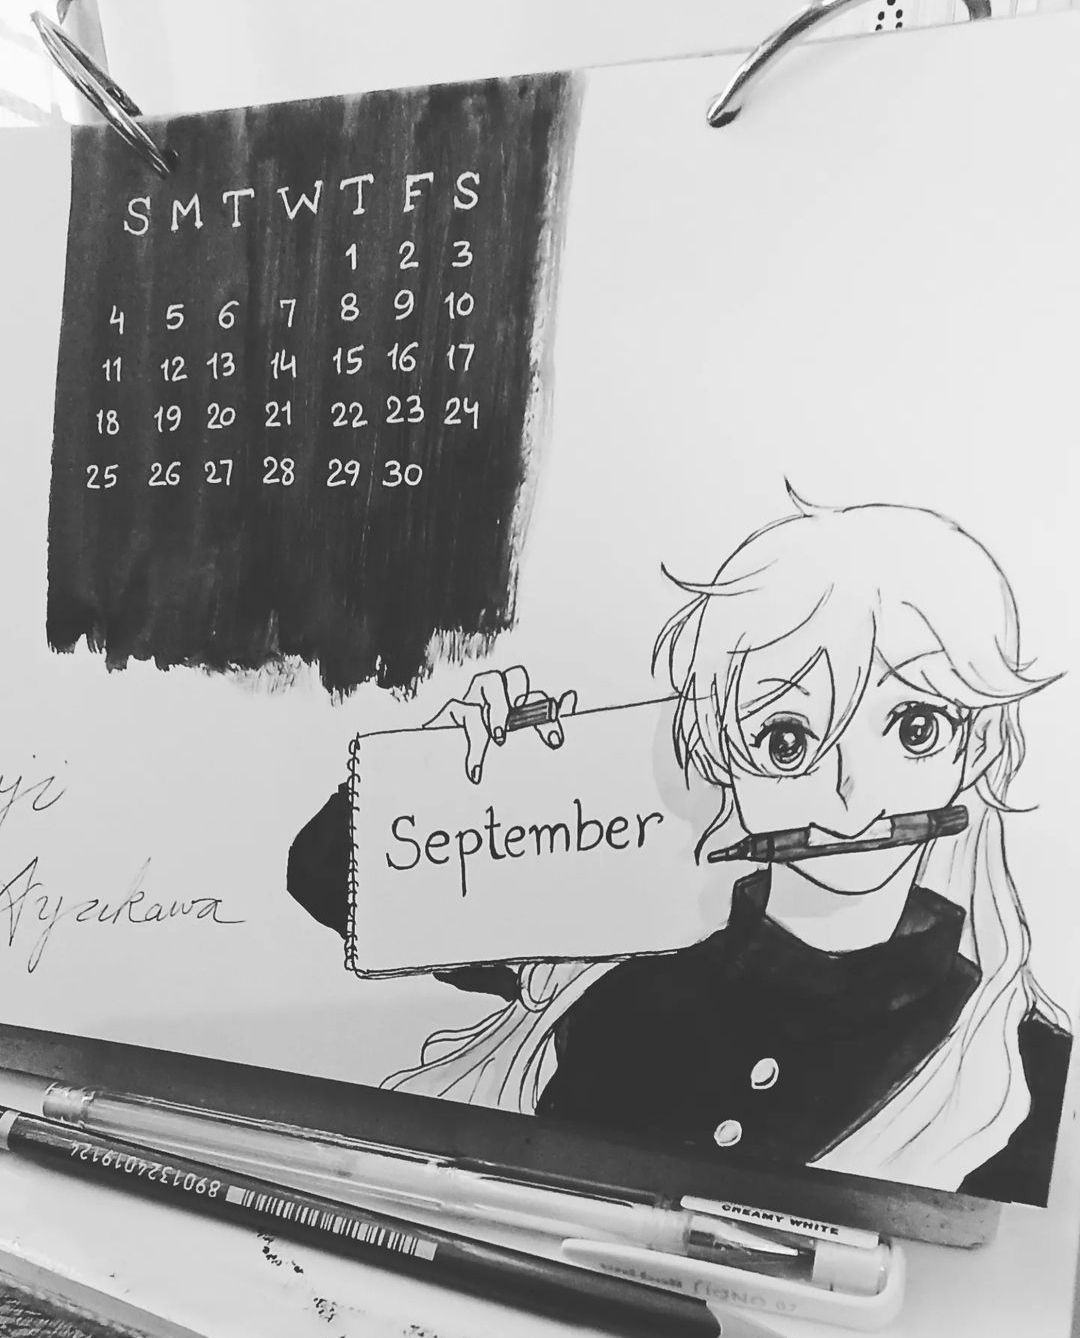 S M T W T F S
1 2 3
4 5 6 7 8 9 10
11 12 13 14 15 16 17
18 19 20 21 22 23 24
25 26 27 28 29 30
September
yji
Ayukawa
8901324019124
CREAMY WHITE
uni-ball SIGNO